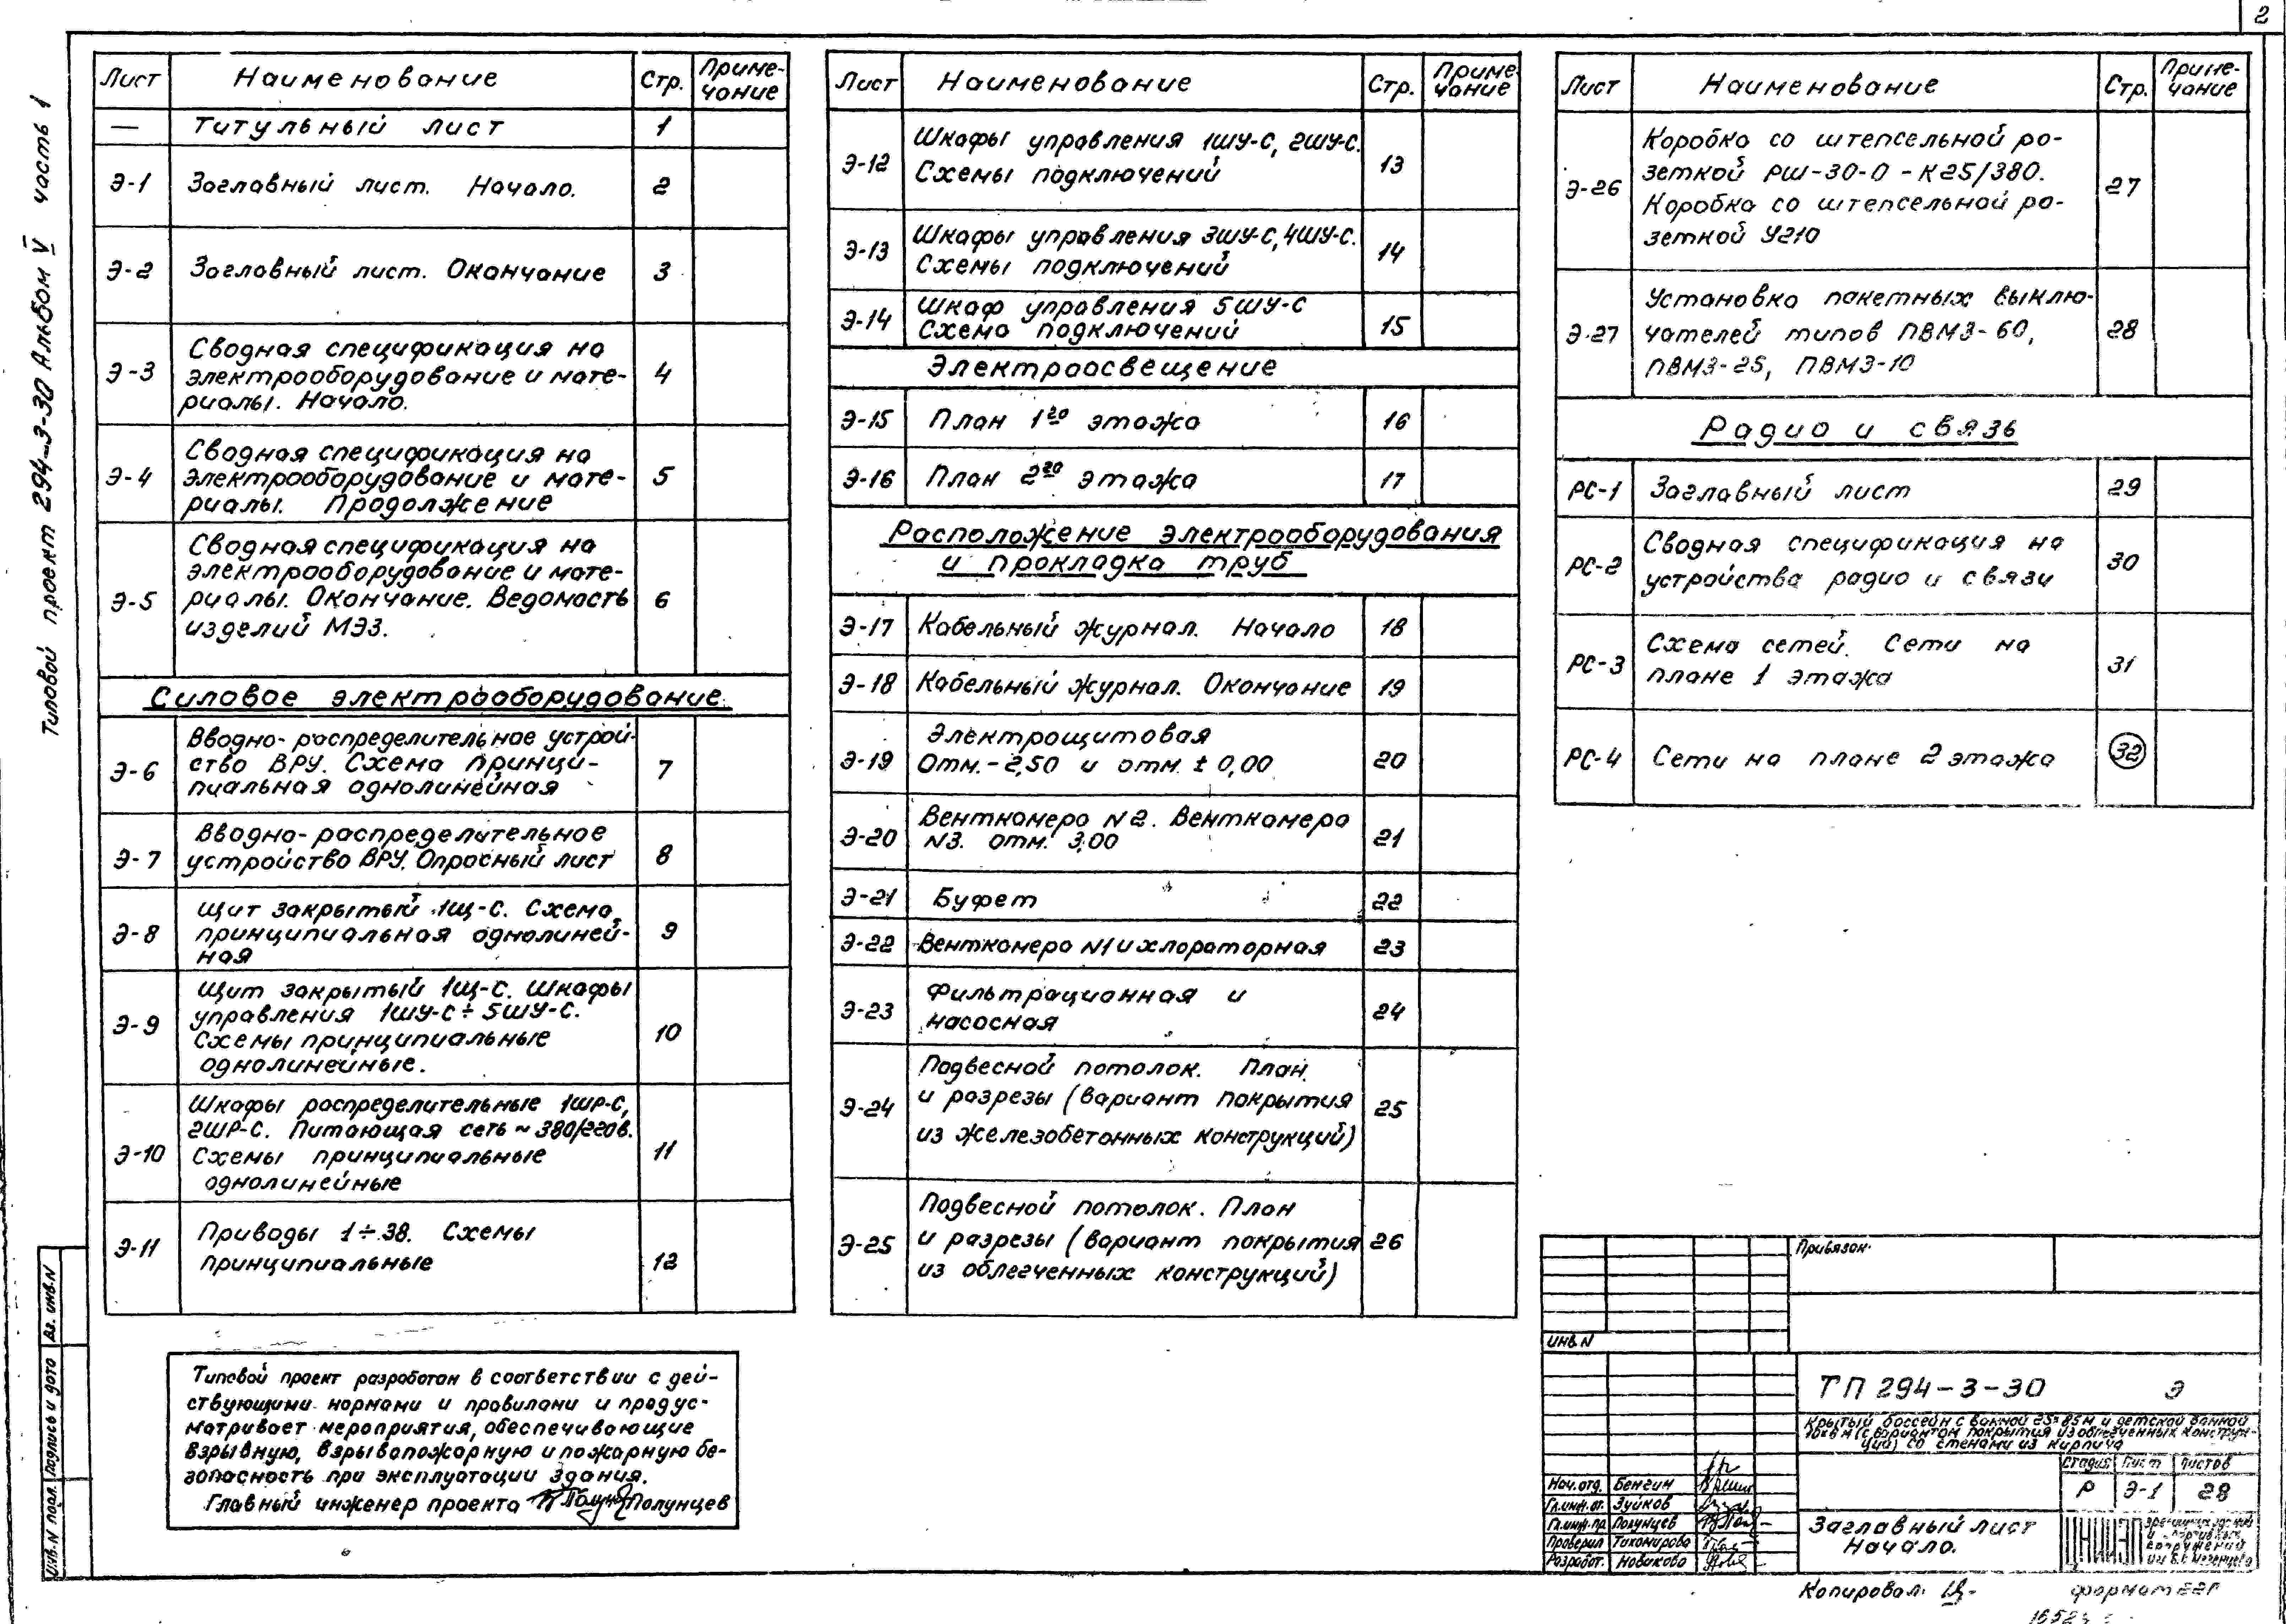 2
Типовой проект 294-3-30 Альбом V часть 1
Лист Наименование Стр. Приме-
чание
— Титульный лист 1
Э-1 Заглавный лист. Начало. 2
Э-2 Заглавный лист. Окончание 3
Э-3 Сводная спецификация на
электрооборудование и мате-
риалы. Начало. 4
Э-4 Сводная спецификация на
электрооборудование и мате-
риалы. Продолжение 5
Э-5 Сводная спецификация на
электрооборудование и мате-
риалы. Окончание. Ведомость
изделий МЭЗ. 6
Силовое электрооборудование.
Э-6 Вводно-распределительное устрой-
ство ВРУ. Схема принци-
пиальная однолинейная 7
Э-7 Вводно-распределительное
устройство ВРУ. Опросный лист 8
Э-8 Щит закрытый 1Щ-С. Схема
принципиальная однолиней-
ная 9
Э-9 Щит закрытый 1Щ-С. Шкафы
управления 1ШУ-С÷5ШУ-С.
Схемы принципиальные
однолинейные. 10
Э-10 Шкафы распределительные 1ШР-С,
2ШР-С. Питающая сеть ~380/220в.
Схемы принципиальные
однолинейные 11
Э-11 Приводы 1÷38. Схемы
принципиальные 12
Лист Наименование Стр. Приме-
чание
Э-12 Шкафы управления 1ШУ-С, 2ШУ-С.
Схемы подключений 13
Э-13 Шкафы управления 3ШУ-С, 4ШУ-С.
Схемы подключений 14
Э-14 Шкаф управления 5ШУ-С
Схема подключений 15
Электроосвещение
Э-15 План 1го этажа 16
Э-16 План 2го этажа 17
Расположение электрооборудования
и прокладка труб
Э-17 Кабельный журнал. Начало 18
Э-18 Кабельный журнал. Окончание 19
Э-19 Электрощитовая
Отм.-2,50 и отм. ± 0,00 20
Э-20 Венткамера N2. Венткамера
N3. отм. 3,00 21
Э-21 Буфет 22
Э-22 Венткамера N1 и хлораторная 23
Э-23 Фильтрационная и
насосная 24
Э-24 Подвесной потолок. План
и разрезы (вариант покрытия
из железобетонных конструкций) 25
Э-25 Подвесной потолок. План
и разрезы (вариант покрытия
из облегченных конструкций) 26
Лист Наименование Стр. Приме-
чание
Э-26 Коробка со штепсельной ро-
зеткой РШ-30-0-К25/380.
Коробка со штепсельной ро-
зеткой У210 27
Э-27 Установка пакетных выклю-
чателей типов ПВМ3-60,
ПВМ3-25, ПВМ3-10 28
Радио и связь
РС-1 Заглавный лист 29
РС-2 Сводная спецификация на
устройства радио и связи 30
РС-3 Схема сетей. Сети на
плане 1 этажа 31
РС-4 Сети на плане 2 этажа 32
Типовой проект разработан в соответствии с дей-
ствующими нормами и правилами и предус-
матривает мероприятия, обеспечивающие
взрывную, взрывопожарную и пожарную бе-
зопасность при эксплуатации здания.
Главный инженер проекта Полунцев
Инв.N подл. Подпись и дата Вз. инв.N
Привязан.
инв.N
ТП 294-3-30 Э
Крытый бассейн с ванной 25×8,5м и детской ванной
10×6м (с вариантом покрытия из облегченных конструк-
ций) со стенами из кирпича
Стадия Лист Листов
Р Э-1 28
Нач.отд. Бенгин
Гл.инж.от. Зуйков
Гл.инж.пр. Полунцев
Проверил Тихомирова
Разработ. Новикова
Заглавный лист
Начало.
ЦНИИЭП зрелищных зданий
и спортивных
сооружений
им. Б.С. Мезенцева
Копировал: Щ-
формат 22Г